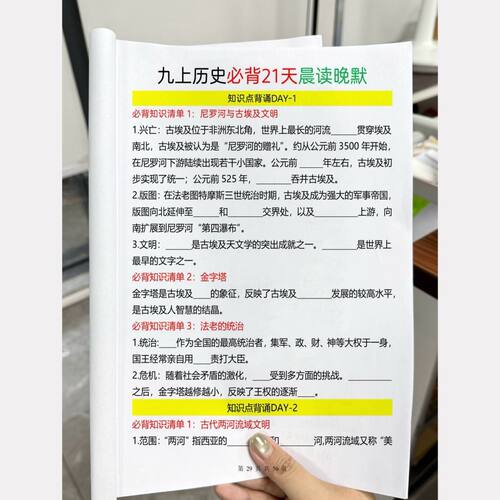 九上历史必背21天晨读晚默
知识点背诵DAY-1
必背知识清单 1：尼罗河与古埃及文明
1.兴亡：古埃及位于非洲东北角，世界上最长的河流______贯穿埃及
南北，古埃及被认为是“尼罗河的赠礼”。约从公元前 3500 年开始，
在尼罗河下游陆续出现若干小国家。公元前 ______年左右，古埃及初
步实现了统一；公元前 525 年，________吞并古埃及。
2.版图：在法老图特摩斯三世统治时期，古埃及成为强大的军事帝国，
版图向北延伸至______和________交界处，以及________上游，向
南扩展到尼罗河“第四瀑布”。
3.文明：______是古埃及天文学的突出成就之一。________是世界上
最早的文字之一。
必背知识清单 2：金字塔
金字塔是古埃及____的象征，反映了古埃及________发展的较高水平，
是古埃及人智慧的结晶。
必背知识清单 3：法老的统治
1.统治:____作为全国的最高统治者，集军、政、财、神等大权于一身，
国王经常亲自用____责打大臣。
2.危机：随着社会矛盾的激化，____受到多方面的挑战。________
之后，金字塔越修越小，反映了王权的逐渐____。
知识点背诵DAY-2
必背知识清单 1：古代两河流域文明
1.范围：“两河”指西亚的________和________河,两河流域又称“美
第 29 页 共 50 页